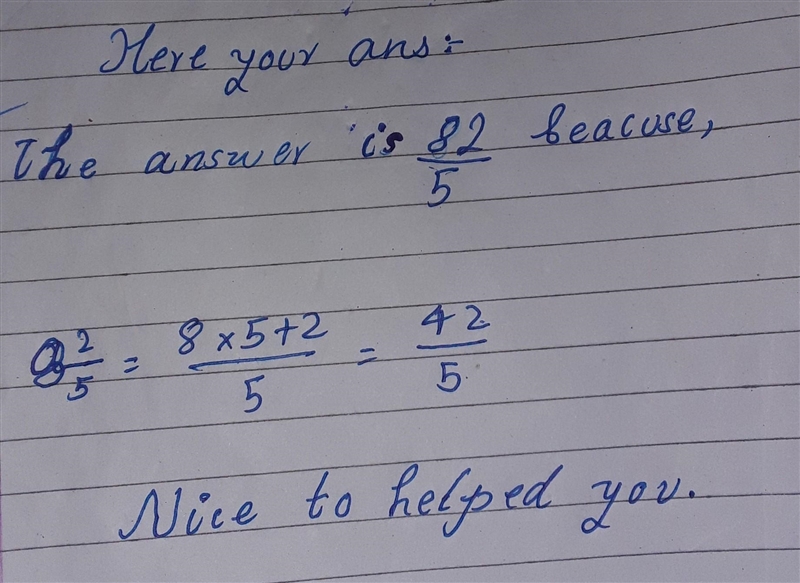 Here your ans:-
The answer is 82/5 beacuse,
8 2/5 = 8×5+2/5 = 42/5
Nice to helped you.